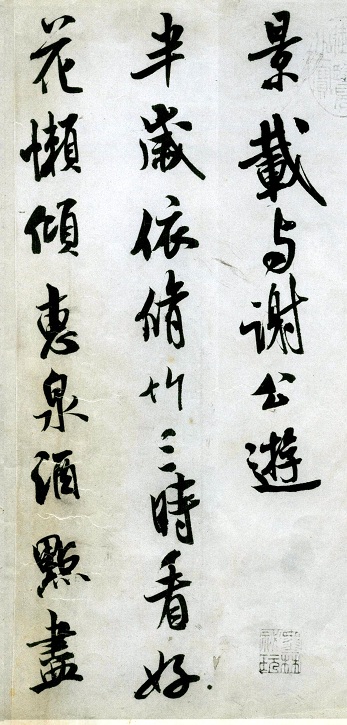 景載與謝公遊
半歲依脩竹三時看好
花懶傾惠泉酒點盡